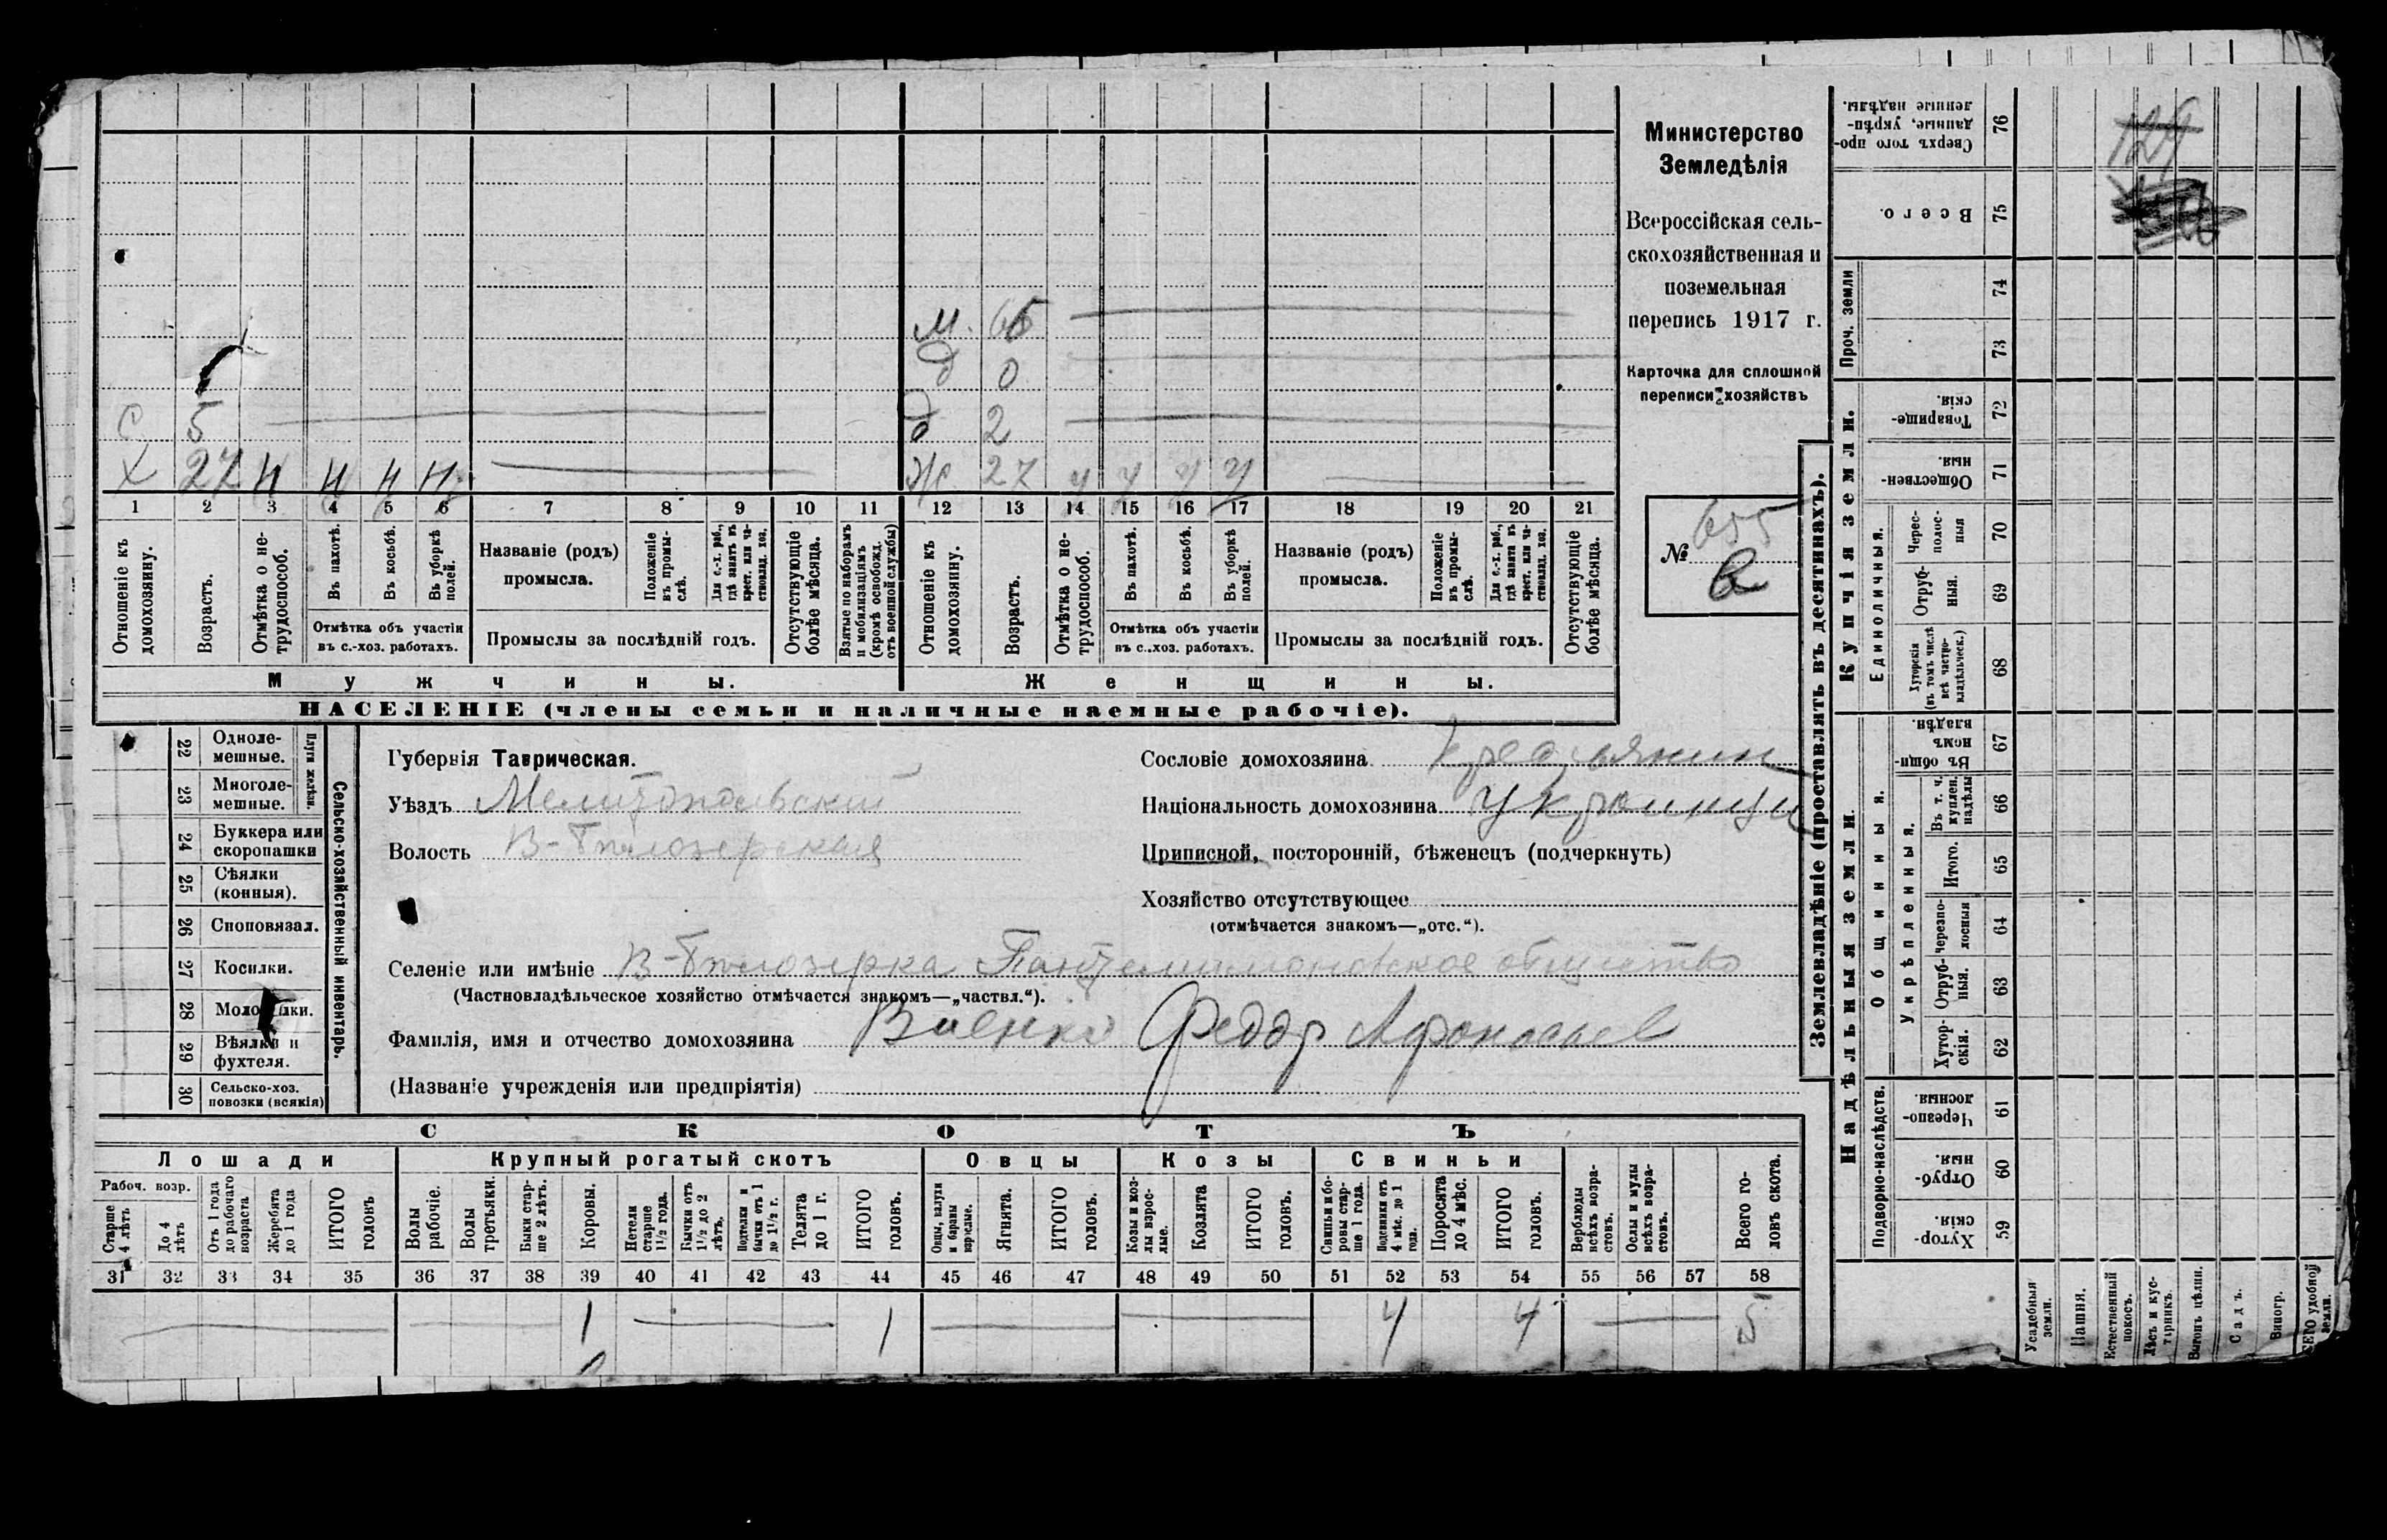 Министерство
Земледѣлія
Всероссійская сель-
скохозяйственная и
поземельная
перепись 1917 г.
Карточка для сплошной
переписи хозяйствъ
№ 655
М. 65
д 0
С 5
д 2
Х 27 н н н н
Ж 27 У У У У
1 2 3 4 5 6 7 8 9 10 11 12 13 14 15 16 17 18 19 20 21
Отношеніе къ домохозяину.
Возрастъ.
Отмѣтка о не-трудоспособ.
Въ пахотѣ.
Въ косьбѣ.
Въ уборкѣ полей.
Отмѣтка объ участіи
въ с.-хоз. работахъ.
Названіе (родъ)
промысла.
Положеніе въ промы-слѣ.
Для с.-х. раб., гдѣ занятъ въ крест. или ча-стновлад. хоз.
Промыслы за послѣдній годъ.
Отсутствующіе болѣе мѣсяца.
Взятые по наборамъ и мобилизаціямъ (кромѣ освобожд. отъ военной службы)
Отношеніе къ домохозяину.
Возрастъ.
Отмѣтка о не-трудоспособ.
Въ пахотѣ.
Въ косьбѣ.
Въ уборкѣ полей.
Отмѣтка объ участіи
въ с.-хоз. работахъ.
Названіе (родъ)
промысла.
Положеніе въ промы-слѣ.
Для с.-х. раб., гдѣ занята въ крест. или ча-стновлад. хоз.
Промыслы за послѣдній годъ.
Отсутствующіе болѣе мѣсяца.
Мужчины. Женщины.
НАСЕЛЕНІЕ (члены семьи и наличные наемные рабочіе).
Сельско-хозяйственный инвентарь.
Плуги желѣзн.
22 Одноле-мешные.
23 Многоле-мешные.
24 Буккера или скоропашки
25 Сѣялки (конныя).
26 Сноповязал.
27 Косилки.
28
29 Вѣялки и фухтеля.
30 Сельско-хоз. повозки (всякія)
Губернія Таврическая.
Уѣздъ Мелитопольский
Волость В-Бѣлозерская
Сословіе домохозяина Крестьянин
Національность домохозяина Украинец
Приписной, посторонній, бѣженецъ (подчеркнуть)
Хозяйство отсутствующее
(отмѣчается знакомъ—„отс.“).
Селеніе или имѣніе В-Бѣлозерка Пантелимоновское общество
(Частновладѣльческое хозяйство отмѣчается знакомъ—„частвл.“).
Фамилія, имя и отчество домохозяина Федор Афонасьев
(Названіе учрежденія или предпріятія)
СКОТЪ
Лошади Крупный рогатый скотъ Овцы Козы Свиньи
Рабоч. возр.
Старше 4 лѣтъ
До 4 лѣтъ
Отъ 1 года до рабочаго возраста
Жеребята до 1 года
ИТОГО головъ
Волы рабочіе.
Волы третьяки.
Быки стар-ше 2 лѣтъ.
Коровы.
Нетели старше 1½ года.
Бычки отъ 1½ до 2 лѣтъ.
Подтелки и бычки отъ 1 до 1½ г.
Телята до 1 г.
ИТОГО головъ.
Овцы, валухи и бараны взрослые.
Ягнята.
ИТОГО головъ.
Козы и коз-лы взрос-лые.
Козлята
ИТОГО головъ.
Свиньи и бо-ровы стар-ше 1 года.
Подсвинки отъ 4 мѣс. до 1 года.
Поросята до 4 мѣс.
ИТОГО головъ.
Верблюды всѣхъ возра-стовъ.
Ослы и мулы всѣхъ возра-стовъ.
Всего го-ловъ скота.
31 32 33 34 35 36 37 38 39 40 41 42 43 44 45 46 47 48 49 50 51 52 53 54 55 56 57 58
1 1 4 4 5
Землевладѣніе (проставлять въ десятинахъ).
Купчія земли.
Надѣльныя земли.
Сверхъ того про-данные, укрѣп-ленные надѣлы. 76
129
Всего. 75
Проч. земли 74 73
Товарище-скія. 72
Обществен-ныя. 71
Единоличныя.
Черес-полос-ныя 70
Отруб-ныя. 69
Хуторскія (въ томъ числѣ всѣ частно-владѣльческ.) 68
Въ общин-номъ владѣн. 67
Общинныя.
Укрѣпленныя.
Въ т. ч. куплен. надѣлы 66
Итого. 65
Черезпо-лосныя 64
Отруб-ныя. 63
Хутор-скія. 62
Подворно-наслѣдств.
Черезпо-лосныя. 61
Отруб-ныя. 60
Хутор-скія. 59
Усадебныя земли.
Пашня.
Естественный покосъ.
Лѣсъ и кус-тарникъ.
Выгонъ цѣлин.
Садъ.
Виногр.
удобной земли.